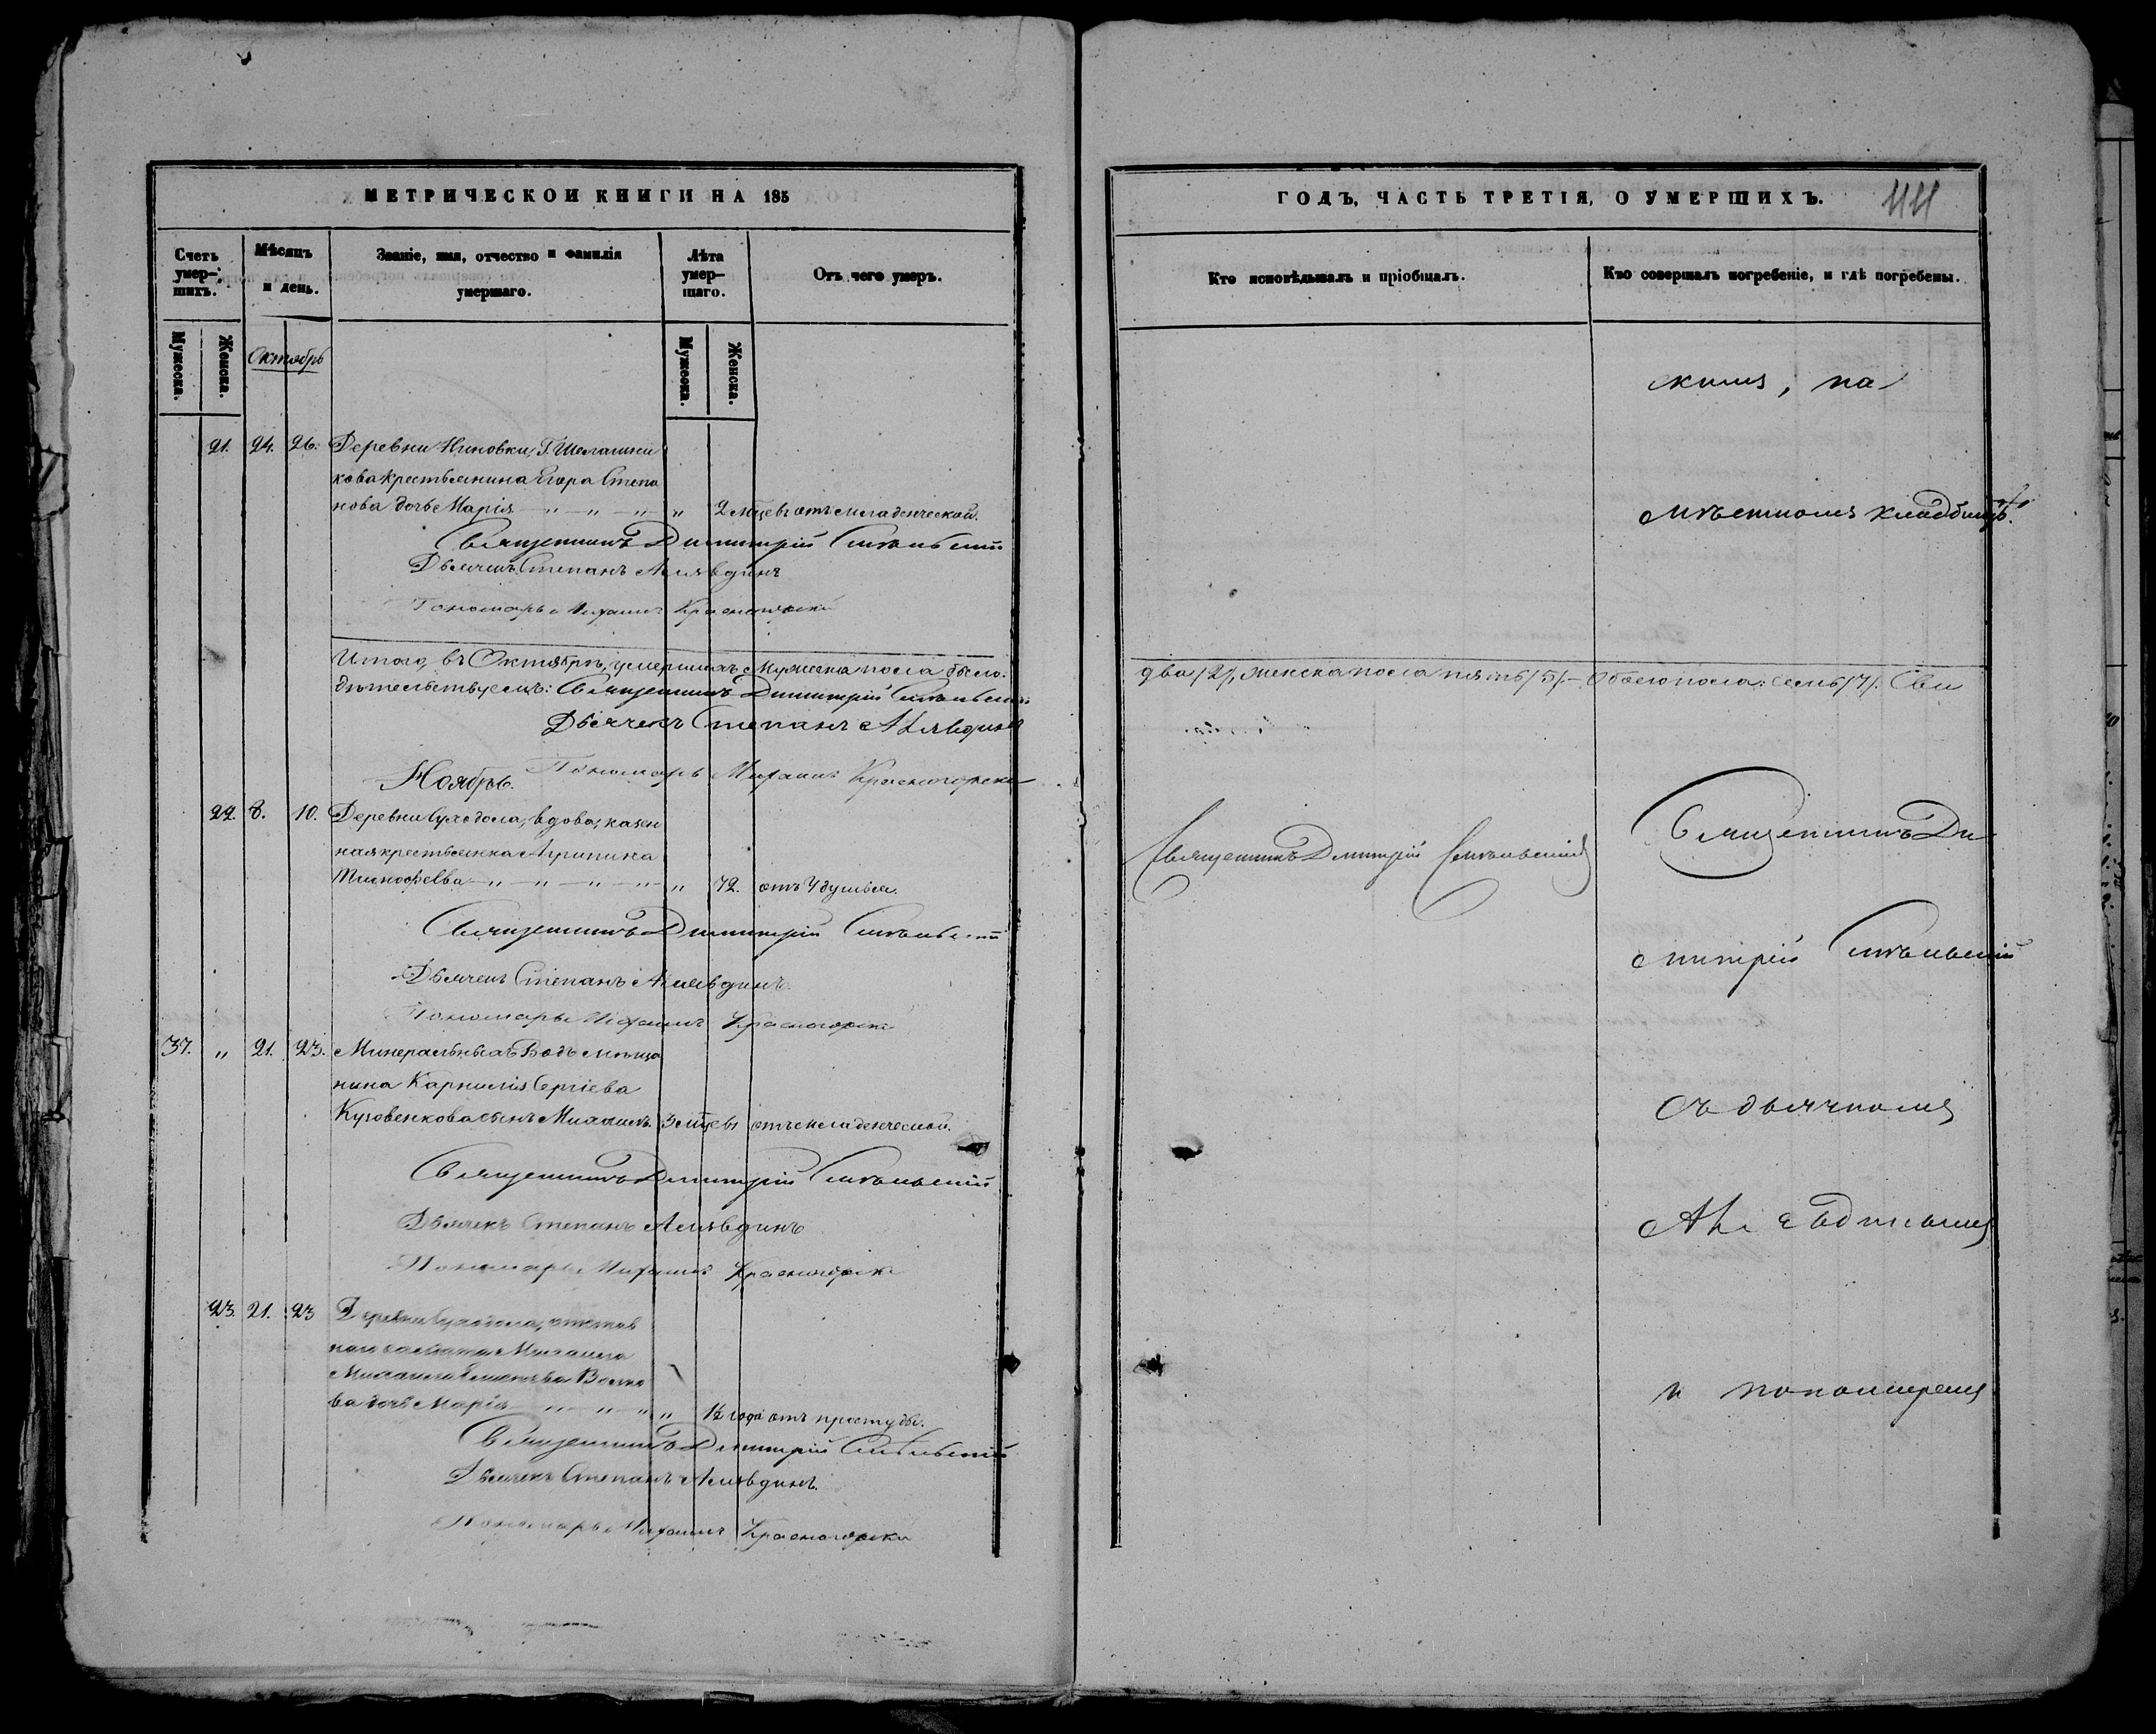 МЕТРИЧЕСКОЙ КНИГИ НА 185
Счетъ умер-шихъ.
Мѣсяцъ и день.
Званіе, имя, отчество и фамилія умершаго.
Лѣта умер-шаго.
Отъ чего умеръ.
Мужеска.
Женска.
Октябрь
Мужеска.
Женска.
21. 24. 26. Деревни Ниновки, Г. Шелашни
кова крестьянина Егора Степа
нова дочь Марія — „ — „ — „ — „ 2 мцевъ отъ младенческой.
Священникъ Димитрій
Дьячекъ Степанъ
Пономарь Михаилъ Красногорскій
Итого, въ Октябрѣ, умершихъ Мужеска пола было:
дѣтельствуемъ: Священникъ Димитрій
Дьячекъ Степанъ
Пономарь Михаилъ Красногорскій
Ноябрь.
22. 8. 10. Деревни Суходола, вдова, казен
ная крестьянка Агрипина
Тимофеева — „ — „ — „ — „ — „ 72. отъ Удушья.
Священникъ Димитрій
Дьячекъ Степанъ
Пономарь Михаилъ Красногорскій
37. „ 21. 23. Минеральныхъ Водъ мѣща
нина Карнилія Сергіева
Кузовенкова сынъ Михаилъ. 3 мцевъ отъ младенческой.
Священникъ Димитрій
Дьячекъ Степанъ
Пономарь Михаилъ Красногорскій
23. 21. 23 Деревни Суходола, отстав
наго солдата Михаила
Волко
ва дочь Марія — „ — „ — „ „ 1½ года отъ простуды.
Священникъ Димитрій
Дьячекъ Степанъ
Пономарь Михаилъ Красногорскій
ГОДЪ, ЧАСТЬ ТРЕТІЯ, О УМЕРШИХЪ.
Кто исповѣдывалъ и пріобщалъ.
Кто совершалъ погребеніе, и гдѣ погребены.
скимъ, на
мѣстномъ кладбищѣ.
два /2/, женска пола пять /5/. — Обоего пола: семь /7/. Сви
Священникъ Димитрій
Священникъ Ди
митрій
съ дьячкомъ
и пономаремъ